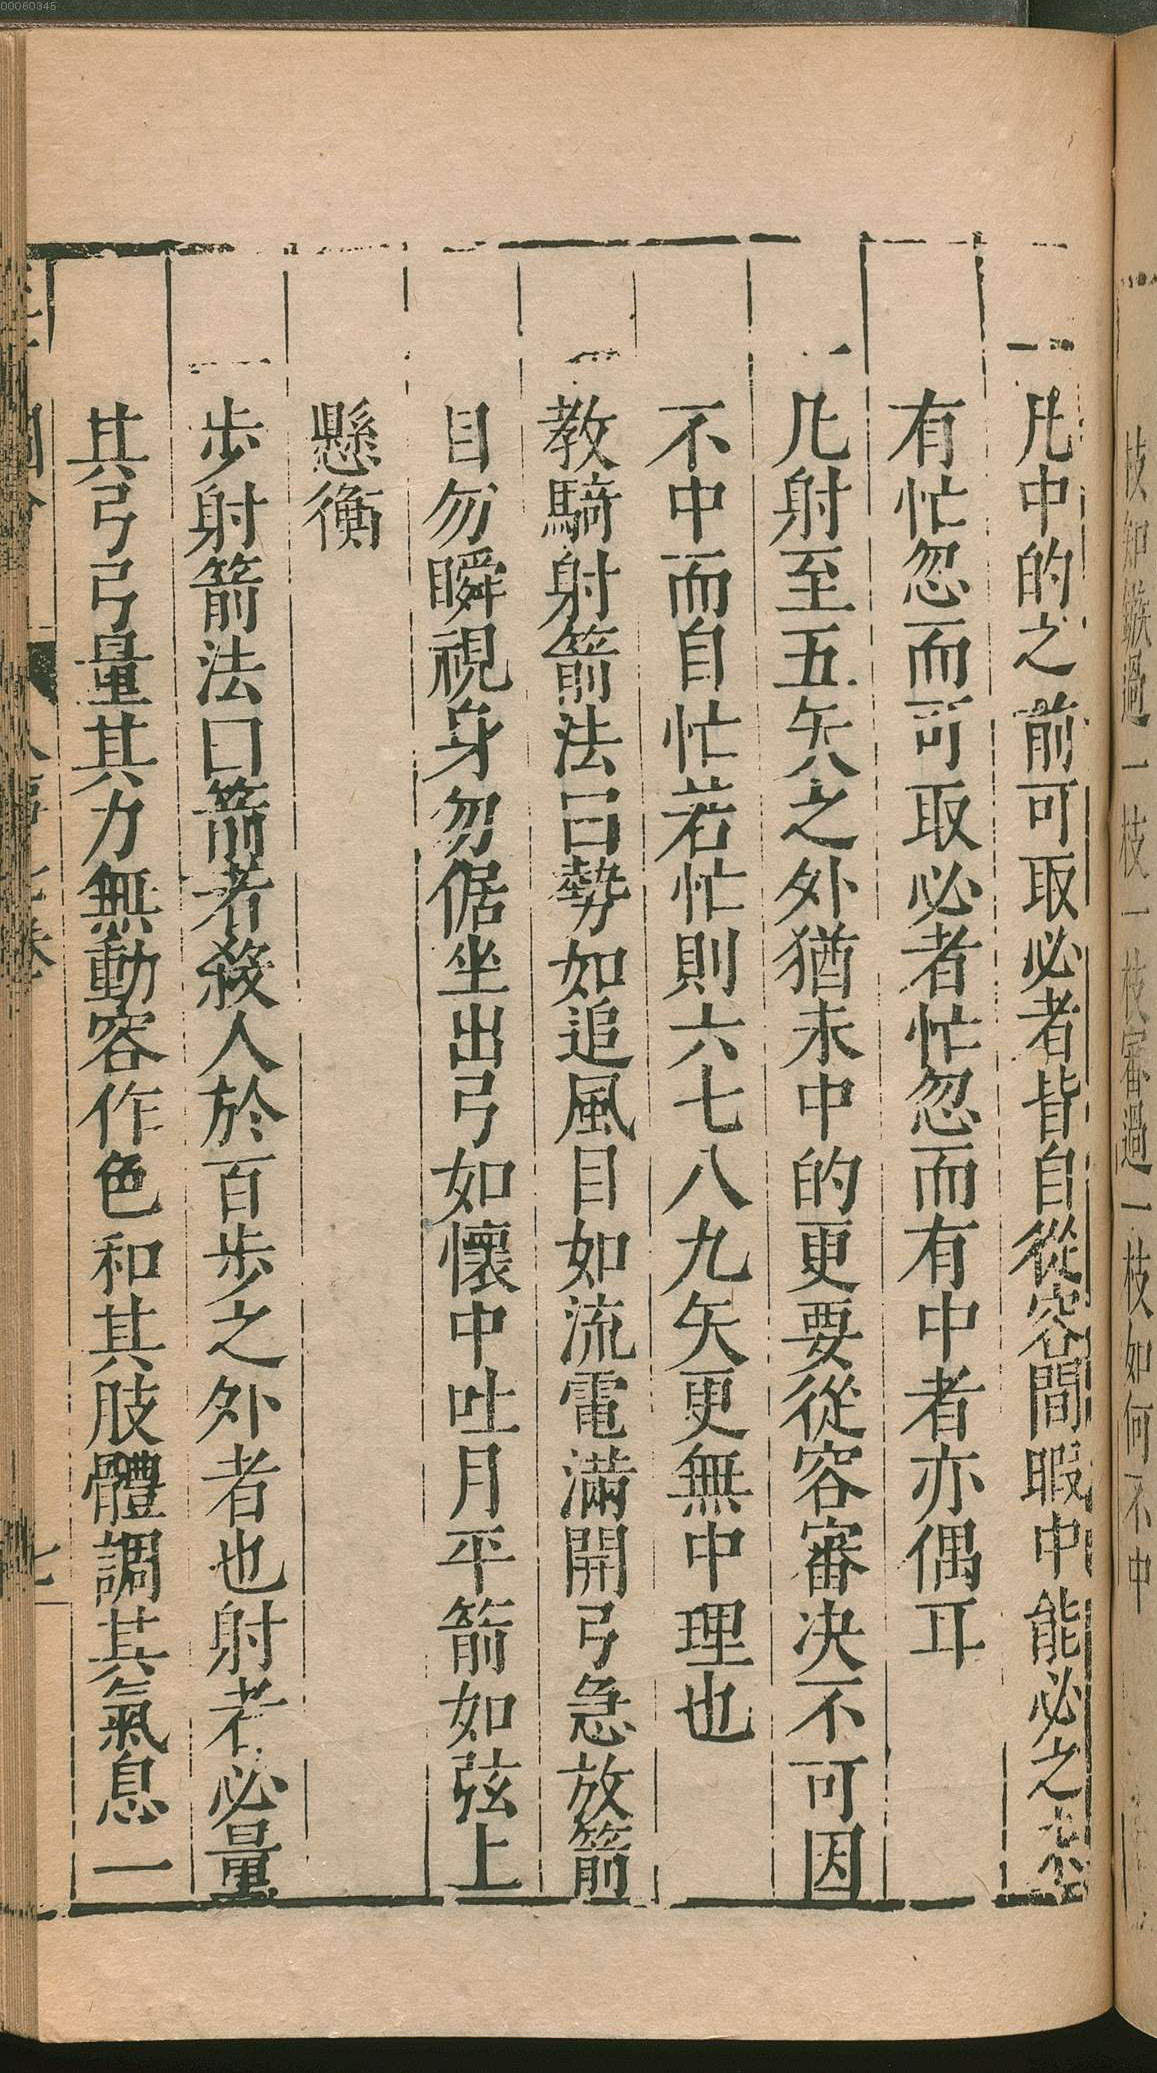 一凡中的之前可取必者皆自從容間暇中能必之
有忙忽而可取必者忙忽而有中者亦偶耳
一凡射至五矢八之外猶未中的更要從容審决不可因
不中而自忙若忙則六七八九矢更無中理也
一教騎射箭法曰勢如追風目如流電滿開弓急放箭
目勿瞬視身勿倨坐出弓如懷中吐月平箭如弦上
懸衡
一步射箭法曰箭者殺人於百步之外者也射者必量
其弓弓量其力無動容作色和其肢體調其氣息一
七
枝如鏃過一枝一枝審過一枝如何不中
00060345